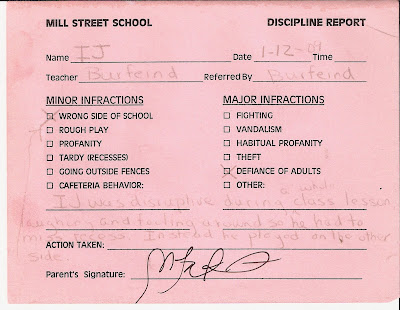 MILL STREET SCHOOL DISCIPLINE REPORT
Name IJ Date 1-12-01 Time
Teacher Burfeind Referred By Burfeind
MINOR INFRACTIONS MAJOR INFRACTIONS
☒ WRONG SIDE OF SCHOOL ☐ FIGHTING
☐ ROUGH PLAY ☐ VANDALISM
☐ PROFANITY ☐ HABITUAL PROFANITY
☐ TARDY (RECESSES) ☐ THEFT
☐ GOING OUTSIDE FENCES ☒ DEFIANCE OF ADULTS
☐ CAFETERIA BEHAVIOR: ☐ OTHER:
a whole
IJ was disruptive during class lesson,
laughing and fooling around so he had to
miss recess. Instead he played on the other
ACTION TAKEN: side.
Parent's Signature: